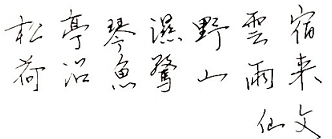 松亭琴濕野雲宿
荷沼魚驚山雨来
仙文